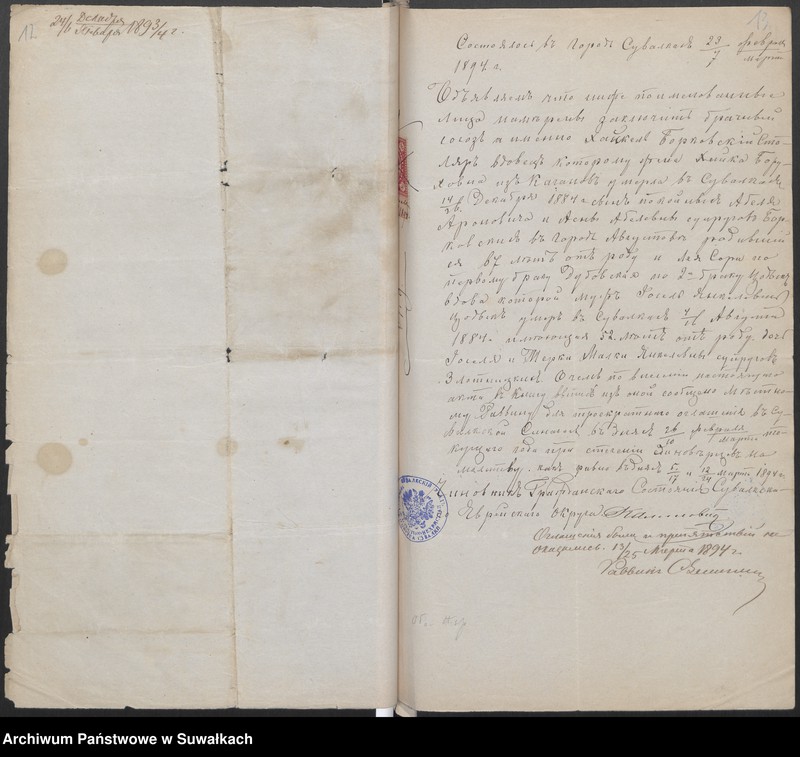 12
24/6 Декабря/Января 1893/4 г.
13
Состоялось въ городѣ Сувалкахъ 23/7 Февраля/Марта
1894 г.
Объявляемъ что ниже поименованныя
лица намѣрены заключить брачный
союзъ а именно Хацкель Борковскій Сто-
ляръ вдовецъ которому жена Хайка Бору-
ховна изъ умерла въ Сувалкахъ
14/26 Декабря 1884 г сынъ покойныхъ Абеля
Ароновича и Абелевны супруговъ Бор-
ковскихъ въ городѣ Августовѣ родивший
ся лѣтъ отъ роду и Лея Сора по
первому браку Дубовская по 2му браку
вдова которой мужъ
умеръ въ Сувалкахъ 4/16 Августа
1884 г имѣющая 52 лѣтъ отъ роду дочь
Іоселя и Мерки Малки супруговъ
Злотницкихъ. О чемъ по внесеніи настоящаго
акта въ книгу выписъ изъ оной сообщено мѣстно
му Раввину для троекратнаго оглашенія въ Су-
валкской Синагогѣ въ дняхъ 26/10 Февраля/Марта те-
кущаго года при стеченіи Единовѣрцевъ на
молитву. какъ равно въ дняхъ 5/17 и 12/24 марта 1894 г.
Чиновникъ Гражданскаго Состоянія Сувалкска-
го Еврейскаго округа
Оглашенія были и препятствій не
оказалось. 13/25 Марта 1894 г.
Раввинъ
Archiwum Państwowe w Suwałkach